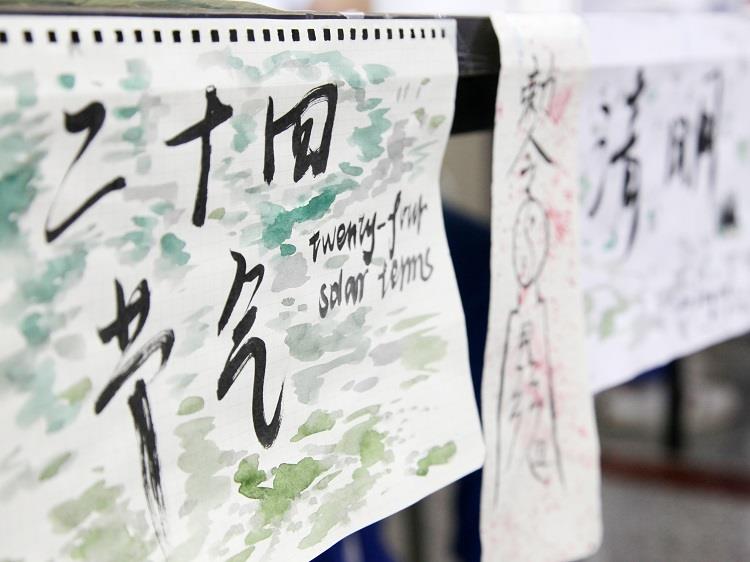 二十四
节气
twenty-four
solar terms
勅令
清明